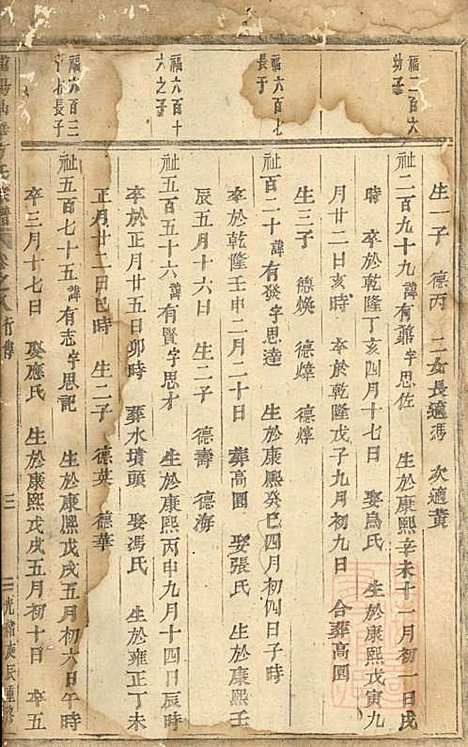 生一子 德丙 二女長適馮 次適黃
福二百六
幼子
祉二百九十九諱有鼐字思佐 生於康熙辛未十一月初一日戌
時 卒於乾隆丁亥四月十七日 娶爲氏 生於康熙戊寅九
月廿二日亥時 卒於乾隆戊子九月初九日 合葬高園
生三子 德煥 德煒 德㷖
福六百七
長子
祉百二十諱有發字思達 生於康熙癸巳四月初四日子時
卒於乾隆壬申二月二十日 葬高園 娶張氏 生於康熙壬
辰五月十六日 生二子 德壽 德海
福六百十
六之子
祉五百五十六諱有賢字思才 生於康熙丙申九月十四日辰時
卒於正月廿五日卯時 葬水墳頭 娶馮氏 生於雍正丁未
正月廿二日巳時 生二子 德英 德華
福六百三
十七長子
祉五百七十五諱有志字思記 生於康熙戊戌五月初六日午時
卒三月十七日 娶應氏 生於康熙戊戌五月初十日 卒五
氏宗譜 卷之八 行傳 三 光緒庚辰重修